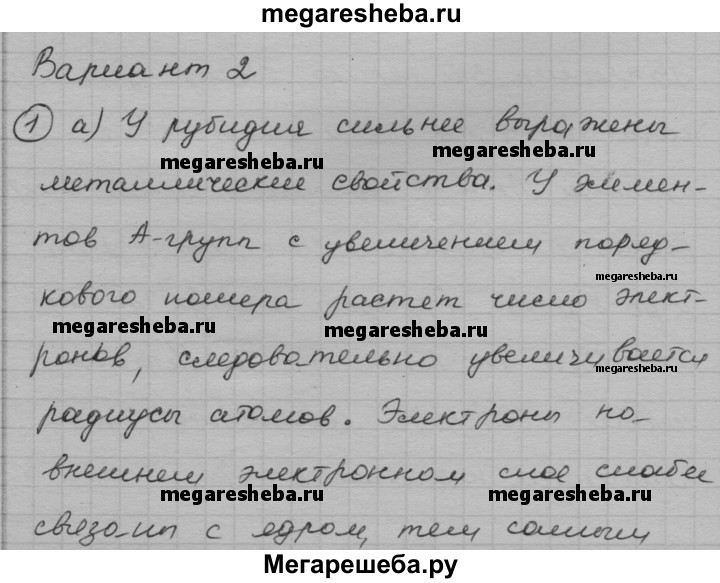 megaresheba.ru
Вариант 2
1 а) У рубидия сильнее выражены
megaresheba.ru megaresheba.ru
металлические свойства. У элемен-
тов А-групп с увеличением поряд-
megaresheba.ru
кового номера растет число элект-
megaresheba.ru megaresheba.ru
ронов, следовательно увеличивается
megaresheba.ru
радиусы атомов. Электроны на-
внешнем электронном слое слабее
megaresheba.ru megaresheba.ru
связаны с ядром, тем самым
Мегарешеба.ру